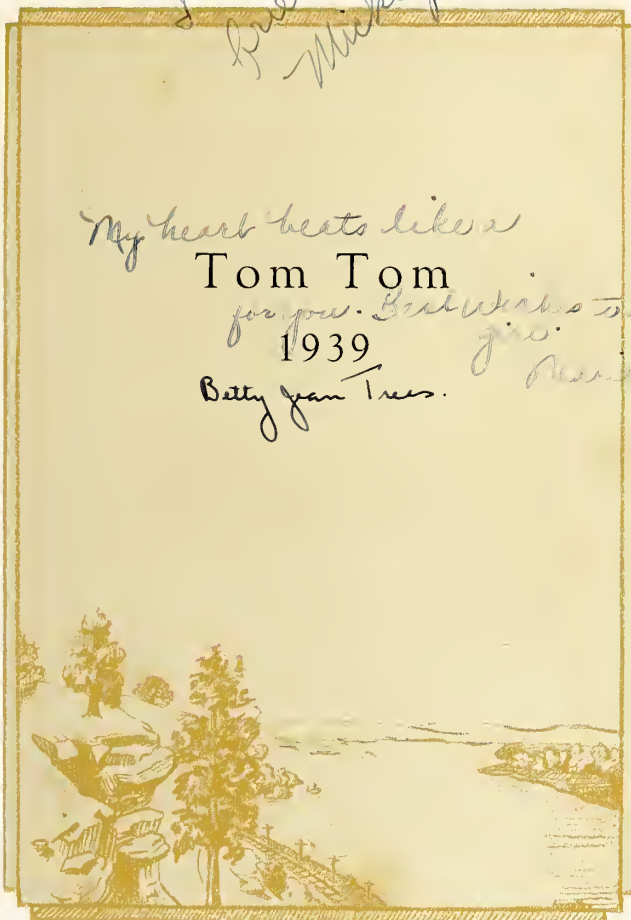 Micky
My heart beats like a
Tom Tom
for you. Best Wishes to
you.
1939
Betty Jean Trees.